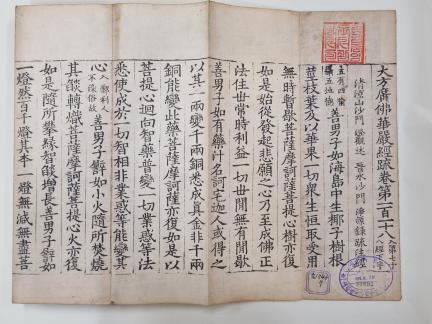 大方廣佛華嚴經疏卷第一百二十八 入第七十八
經下半
清涼山沙門 澄觀述 晉水沙門 淨源錄疏注經
五有四喻
善男子如海島中生椰子樹根
莖枝葉及以華果一切衆生恒取受用
無時暫歇菩薩摩訶薩菩提心樹亦復
如是始從發起悲願之心乃至成佛正
法住世常時利益一切世間無有間歇
善男子如有藥汁名訶宅迦人或得之
以其一兩變千兩銅悉成真金非千兩
銅能變此藥菩薩摩訶薩亦復如是以
菩提心迴向智藥普變一切業惑等法
悉使成於一切智相非業惑等能變其
心 入鄽利人
不隨俗故 善男子譬如小火隨所焚燒
其燄轉熾菩薩摩訶薩菩提心火亦復
如是隨所攀緣智燄增長善男子譬如
一燈然百千燈其本一燈無減無盡菩